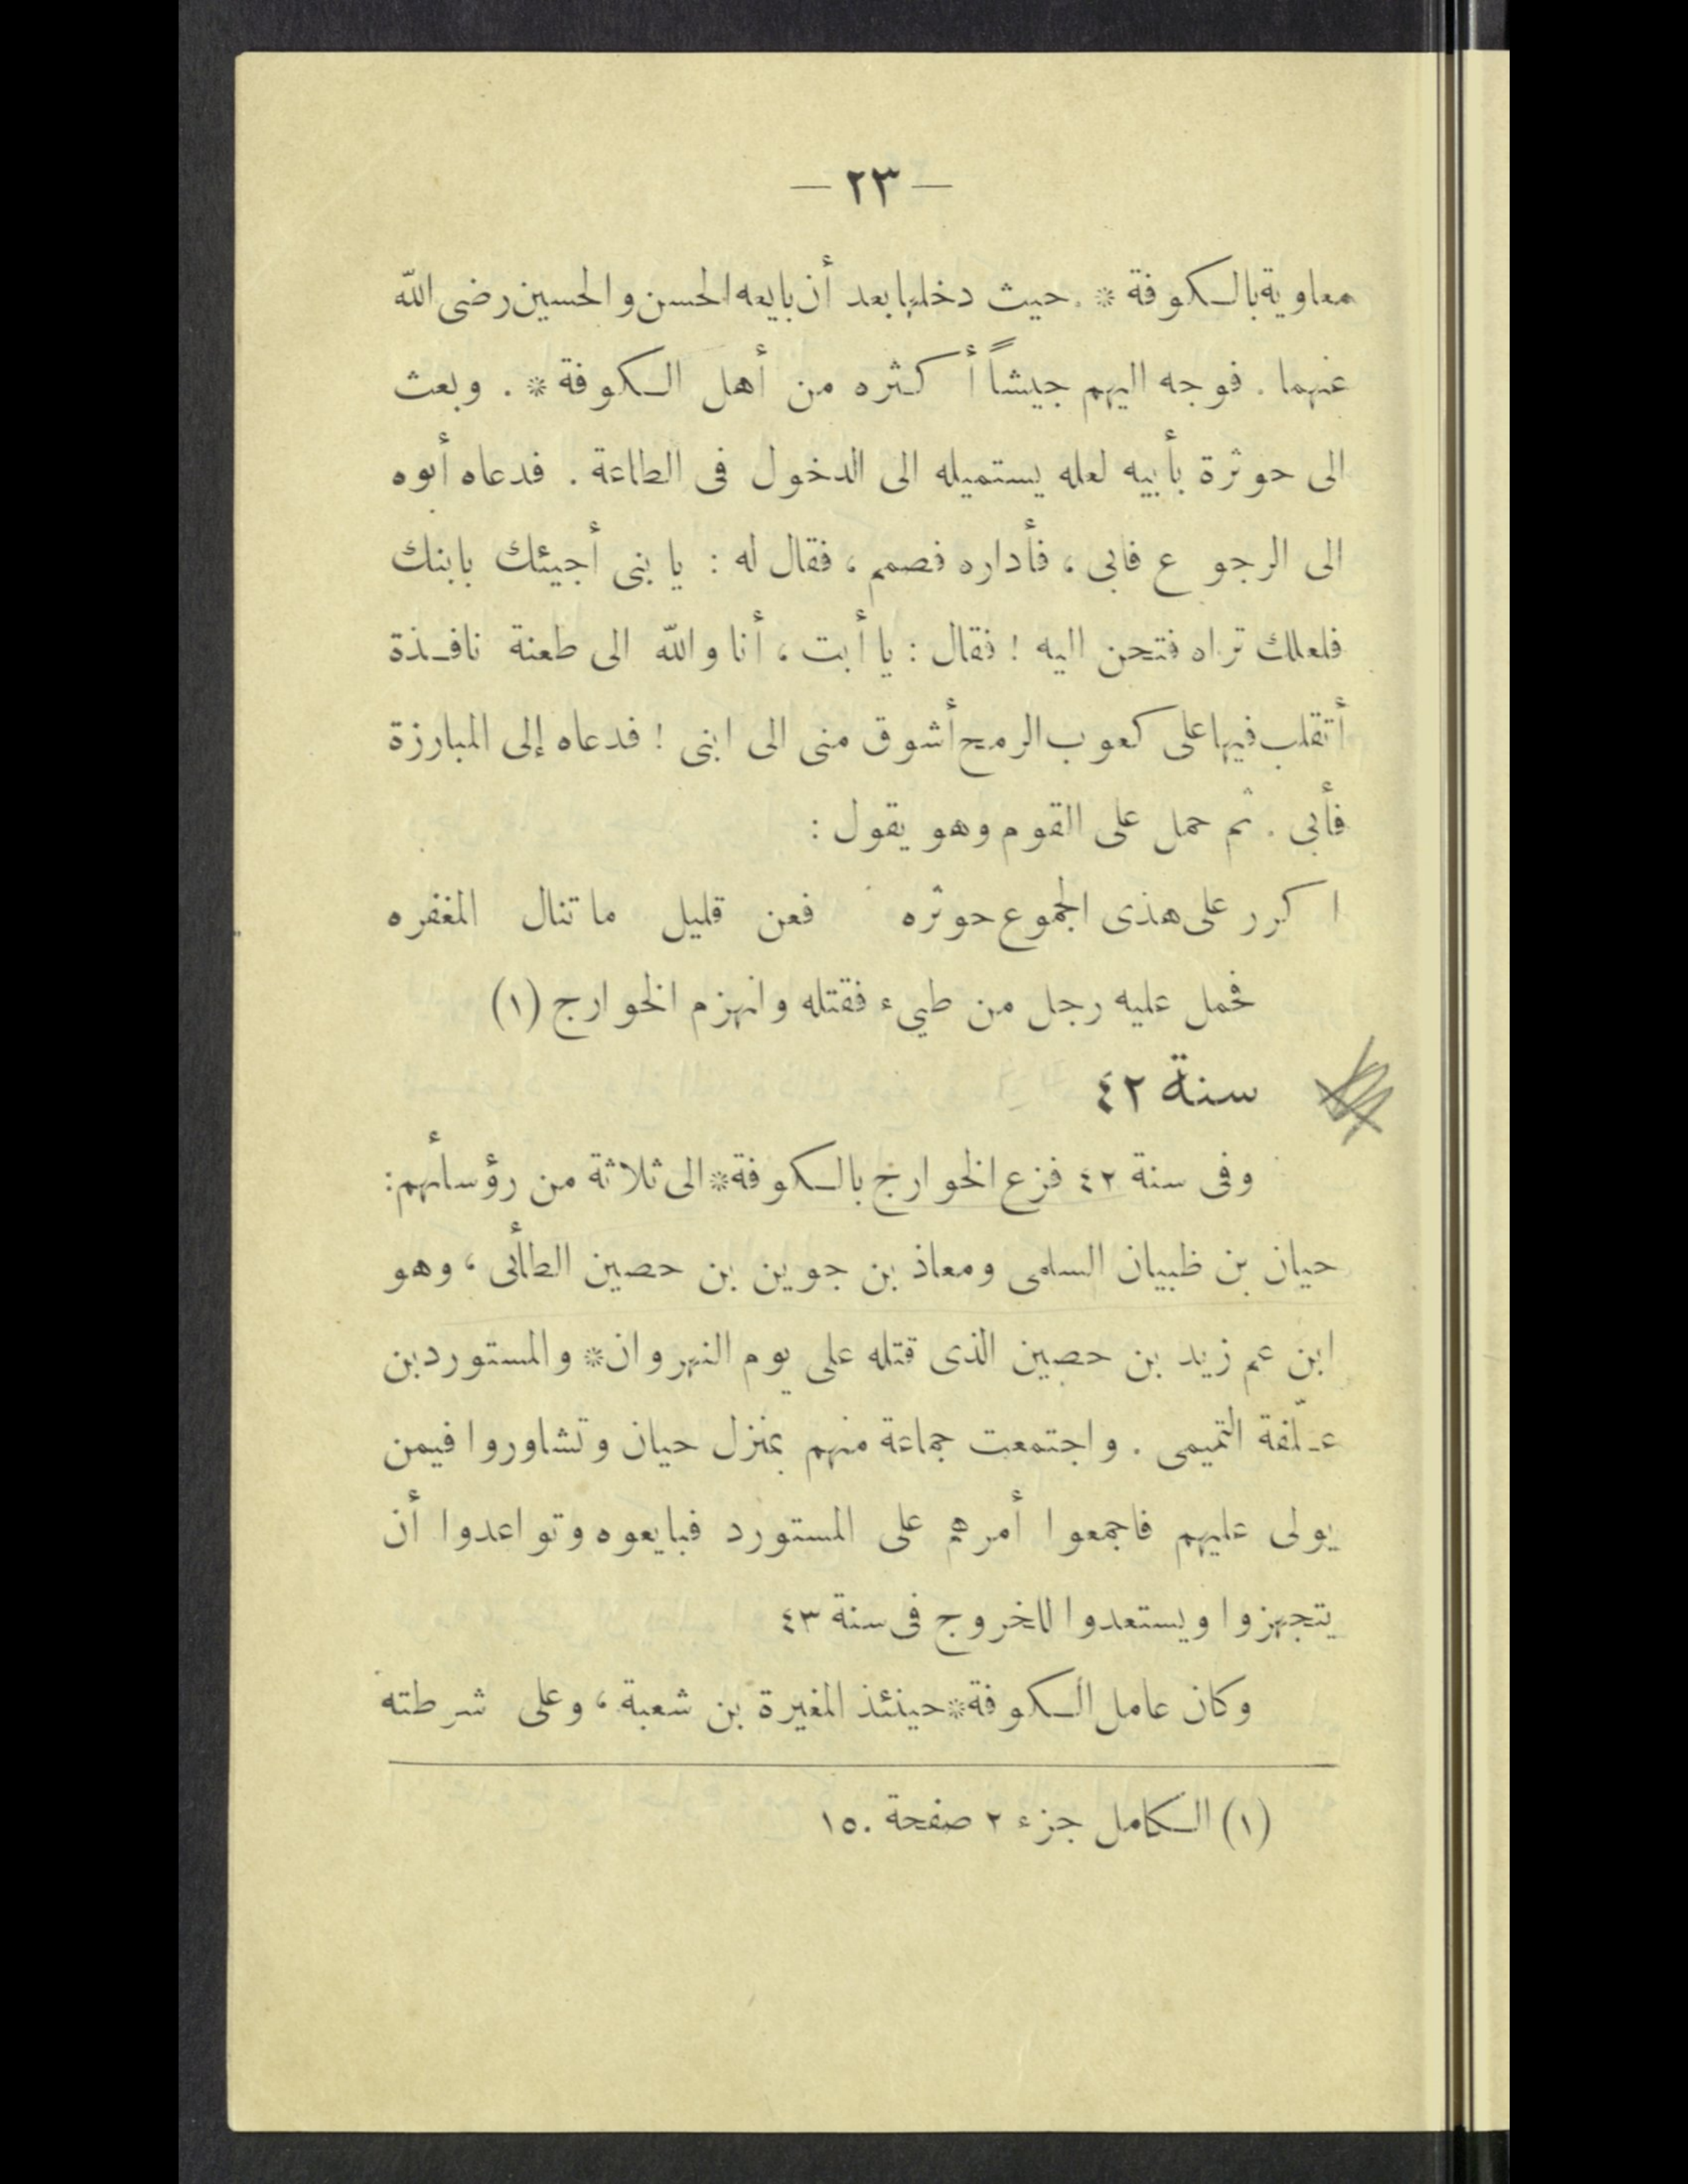 — ٢٣ —
معاوية بالكوفة * . حيث دخلها بعد أن بايعه الحسن والحسين رضى الله
عنهما . فوجه اليهم جيشاً أكثره من أهل الكوفة * . وبعث
الى حوثرة بأبيه لعله يستميله الى الدخول فى الطاعة . فدعاه أبوه
الى الرجوع فابى ، فأداره فصمم ، فقال له : يا بنى أجيئك بابنك
فلعلك تراه فتحن اليه ! فقال : يا أبت ، أنا والله الى طعنة نافذة
أتقلب فيها على كعوب الرمح أشوق منى الى ابنى ! فدعاه إلى المبارزة
فأبى . ثم حمل على القوم وهو يقول :
اكرر على هذى الجموع حوثره فعن قليل ما تنال المغفره
فحمل عليه رجل من طيىء فقتله وانهزم الخوارج (١)
سنة ٤٢
وفى سنة ٤٢ فزع الخوارج بالكوفة * الى ثلاثة من رؤسائهم :
حيان بن ظبيان السلمى ومعاذ بن جوين بن حصين الطأئى ، وهو
ابن عم زيد بن حصين الذى قتله على يوم النهروان * والمستورد بن
علّفة التميمى . واجتمعت جماعة منهم بمنزل حيان وتشاوروا فيمن
يولى عليهم فاجمعوا أمرهم على المستورد فبايعوه وتواعدوا أن
يتجهزوا ويستعدوا للخروج فى سنة ٤٣
وكان عامل الكوفة * حينئذ المغيرة بن شعبة ، وعلى شرطته
(١) الكامل جزء ٢ صفحة ١٥٠